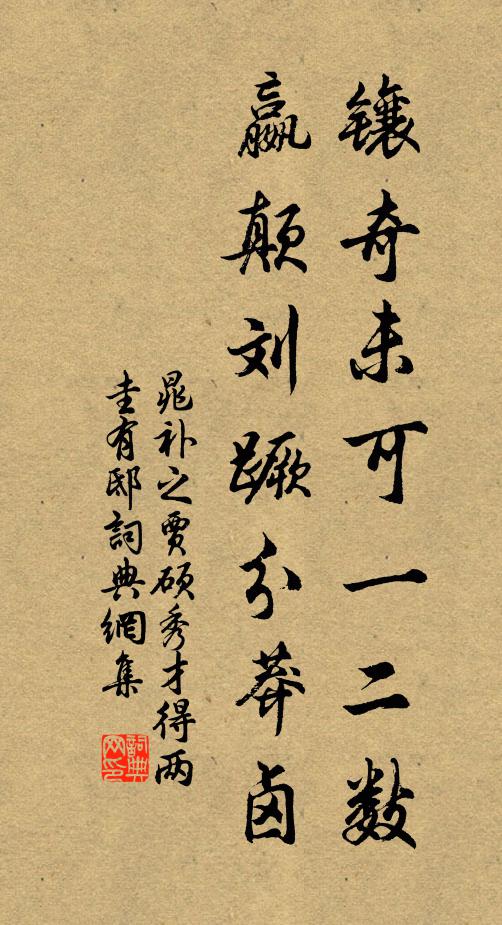 镶奇未可一二数
嬴颠刘蹶分莽卤
晁补之贾硕秀才得两
圭有邸词典網集
詞典
网印